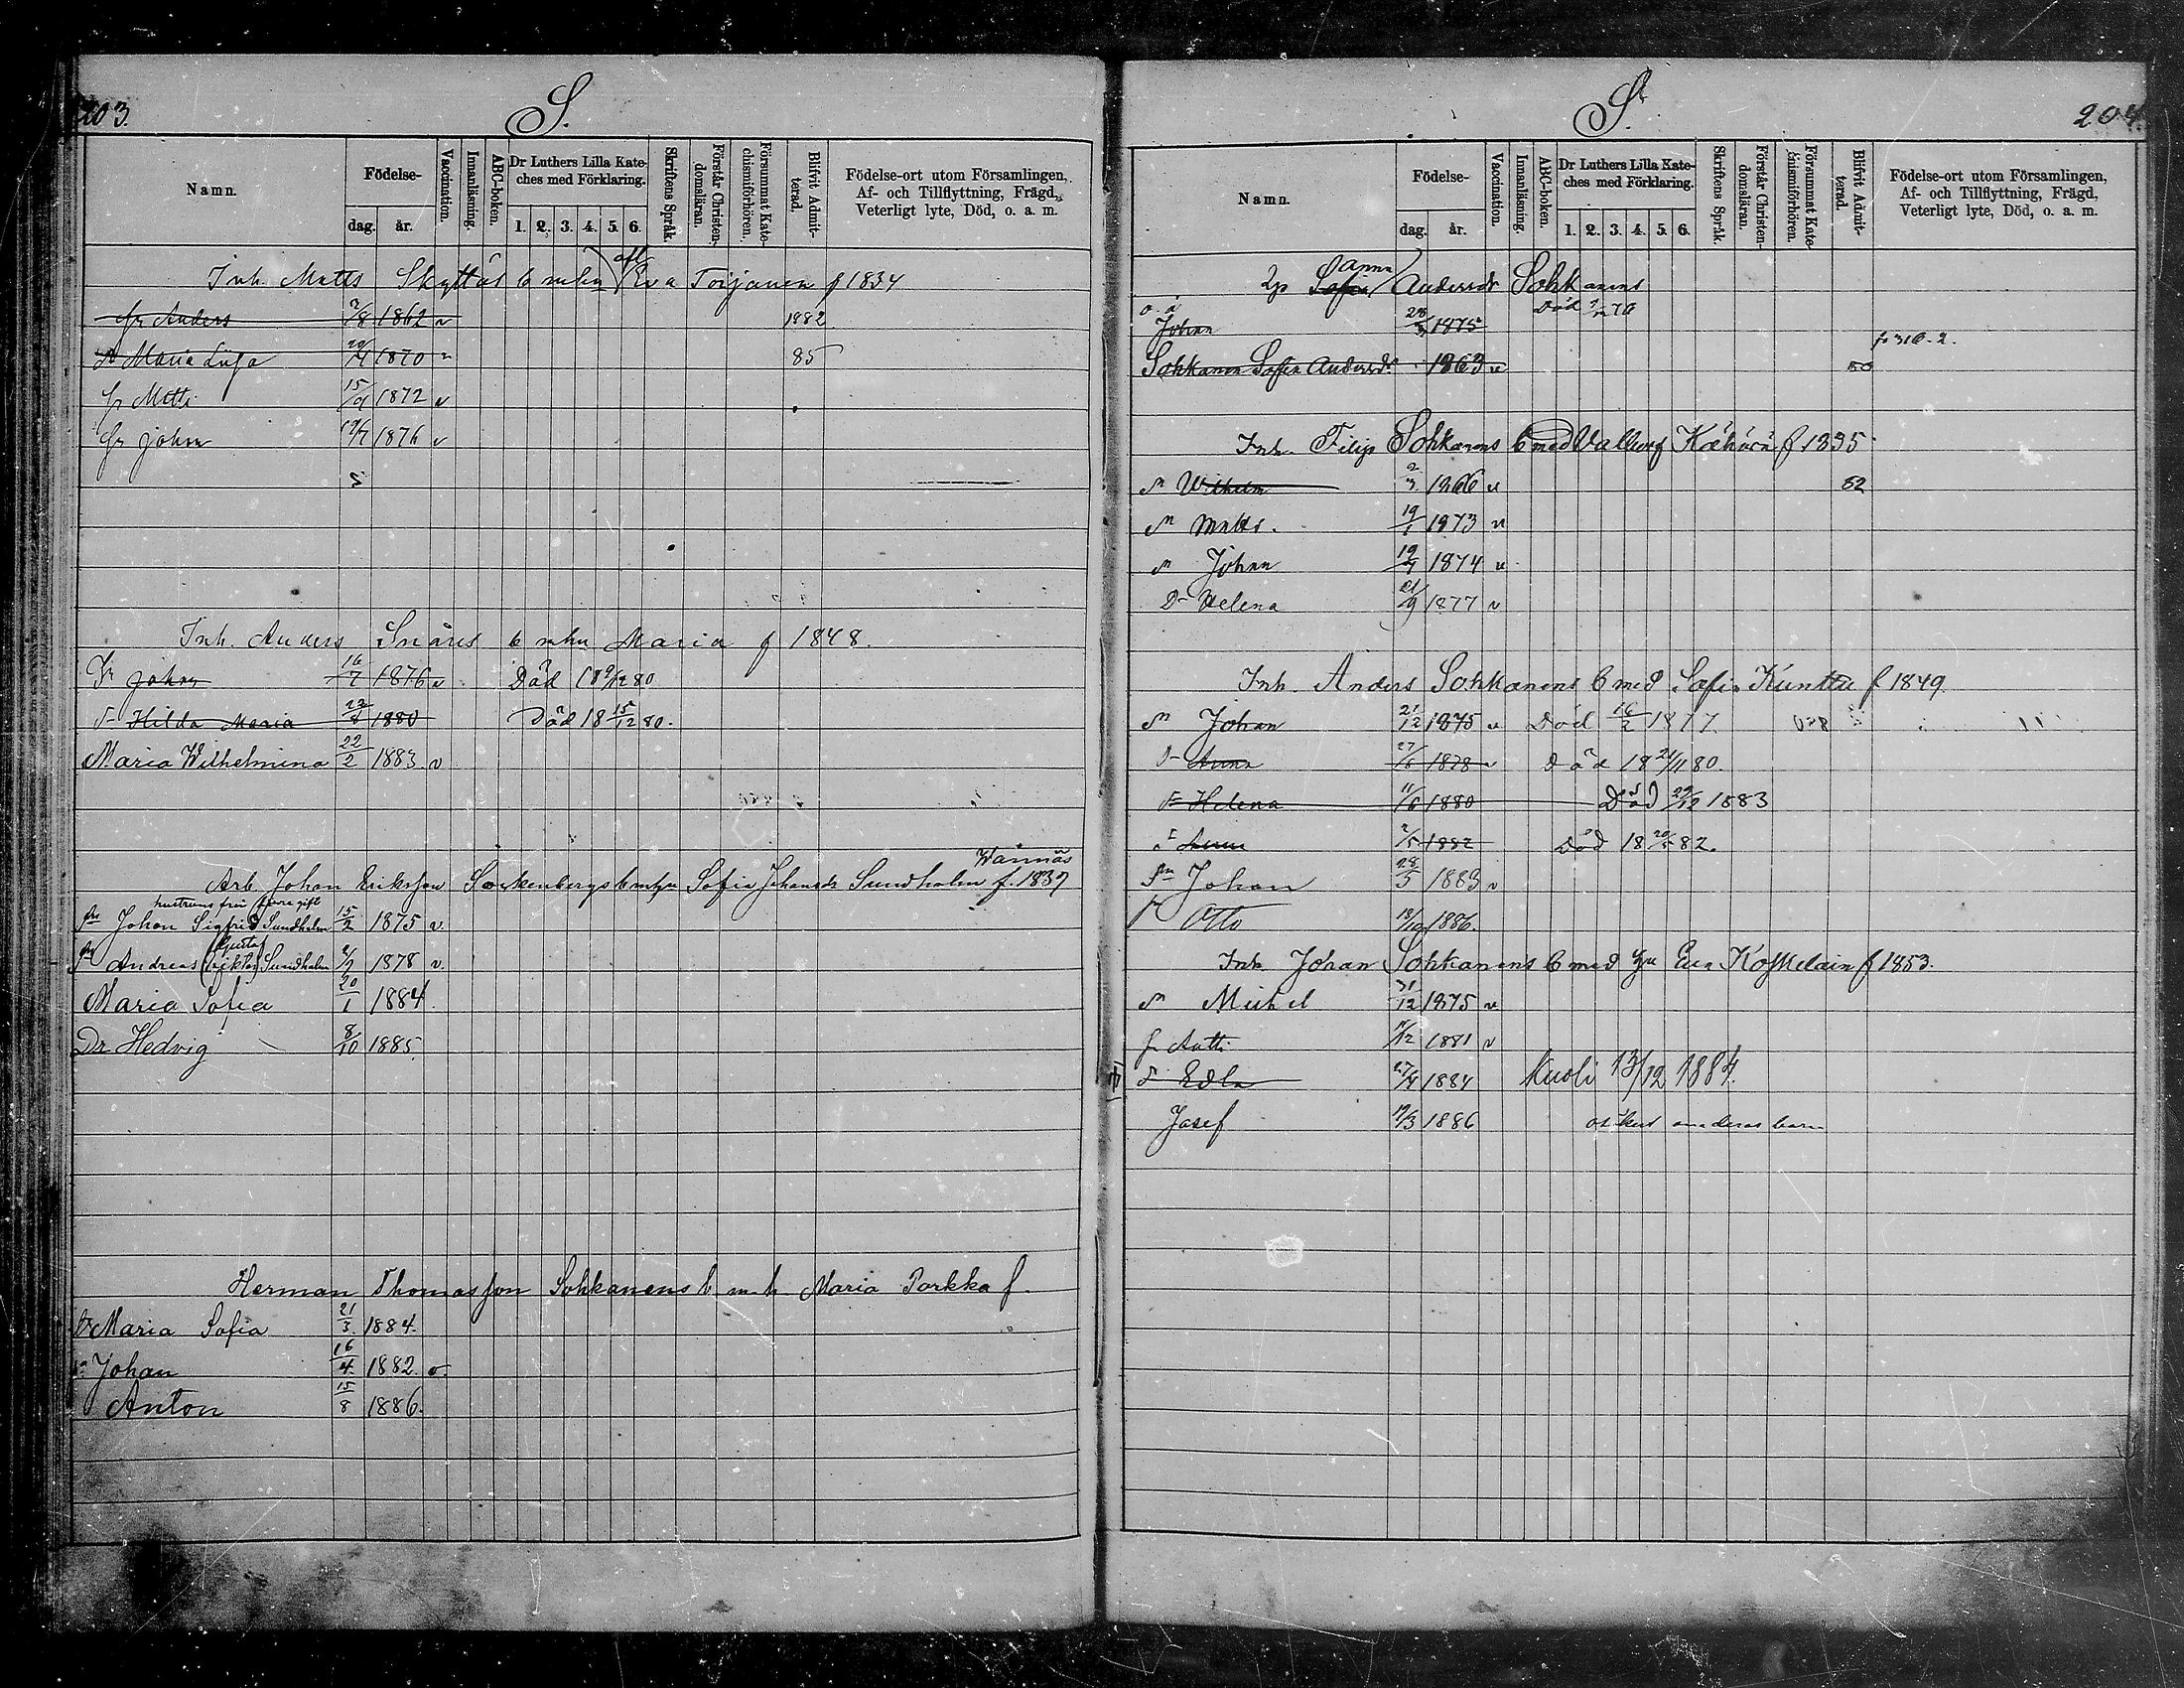 203.
S.
Namn.
Födelse-
dag.
år.
Vaccination.
Innanläsning.
ABC-boken.
Dr Luthers Lilla Kate-
ches med Förklaring.
1. 2. 3. 4. 5. 6.
Skriftens Språk.
Förstår Christen-
domsläran.
Försummat Kate-
chismiförhören.
Blifvit Admit-
terad.
Födelse-ort utom Församlingen,
Af- och Tillflyttning, Frägd,
Veterligt lyte, Död, o. a. m.
Inh. Matts Skyttäs b mhu afl Eva Toijanen f 1834
Anders 2/8 1862 v 1882
Maria Liisa 1870 v 85
Matti 15/9 1872 v
Johan 19/7 1876 v
Inh. Anders Snåres b mhu Maria f 1848.
Johan 16/7 1876 v Död 18 9/12 80
Hilda Maria 1880 Död 18 15/12 80.
Maria Wilhelmina 22/2 1883. v
Wännäs
Arb. Johan Eriksson Sockenbergs b mhu Sofia Johansdr Sundholm f. 1837
hustruns från förra gift
Johan Sigfrid Sundholm 15/2 1875 v.
Gustaf
Andreas (Viktor) Sundholm 1878 v.
Maria Sofia 20/1 1884.
Dr Hedvig 8/10 1885.
Herman Thomasson Sohkanens b m h Maria Porkka f.
Dr Maria Sofia 21/3 1884.
Johan 16/4 1882. v.
Anton 15/8 1886.
S.
204.
Namn.
Födelse-
dag.
år.
Vaccination.
Innanläsning.
ABC-boken.
Dr Luthers Lilla Kate-
ches med Förklaring.
1. 2. 3. 4. 5. 6.
Skriftens Språk.
Förstår Christen-
domsläran.
Försummat Kate-
chismiförhören.
Blifvit Admit-
terad.
Födelse-ort utom Församlingen,
Af- och Tillflyttning, Frägd,
Veterligt lyte, Död, o. a. m.
Anna
Sofia Andersdr Sohkanens
o. ä. Johan 1875 Död 76
Sohkanen Sofia Andersdr 1863 v 80 fr 316.2.
Inh. Filip Sohkanens b med Valborg Kähärä f 1835
Wilhelm 2/3 1866 v 82
Matts. 19/1 1873 v
Johan 19/7 1874 v
Dr Helena 21/9 1877 v
Inh. Anders Sohkanens b med Sofia Kunttu f 1849.
Johan 21/12 1875 v Död 16/2 1877.
Anna 1878 v Död 18 21/11 80.
Helena 11/6 1880 Död 29/12 1883
2/5 1882 Död 18 82.
Johan 28/5 1883 v
Otto 18/10 1886.
Inh. Johan Sohkanens b med hu Eva Koskelain f 1853.
Michel 31/12 1875 v.
Antti 1881 v
Edla 27/4 1884 Kuoli 13/12 1884.
Josef 1886